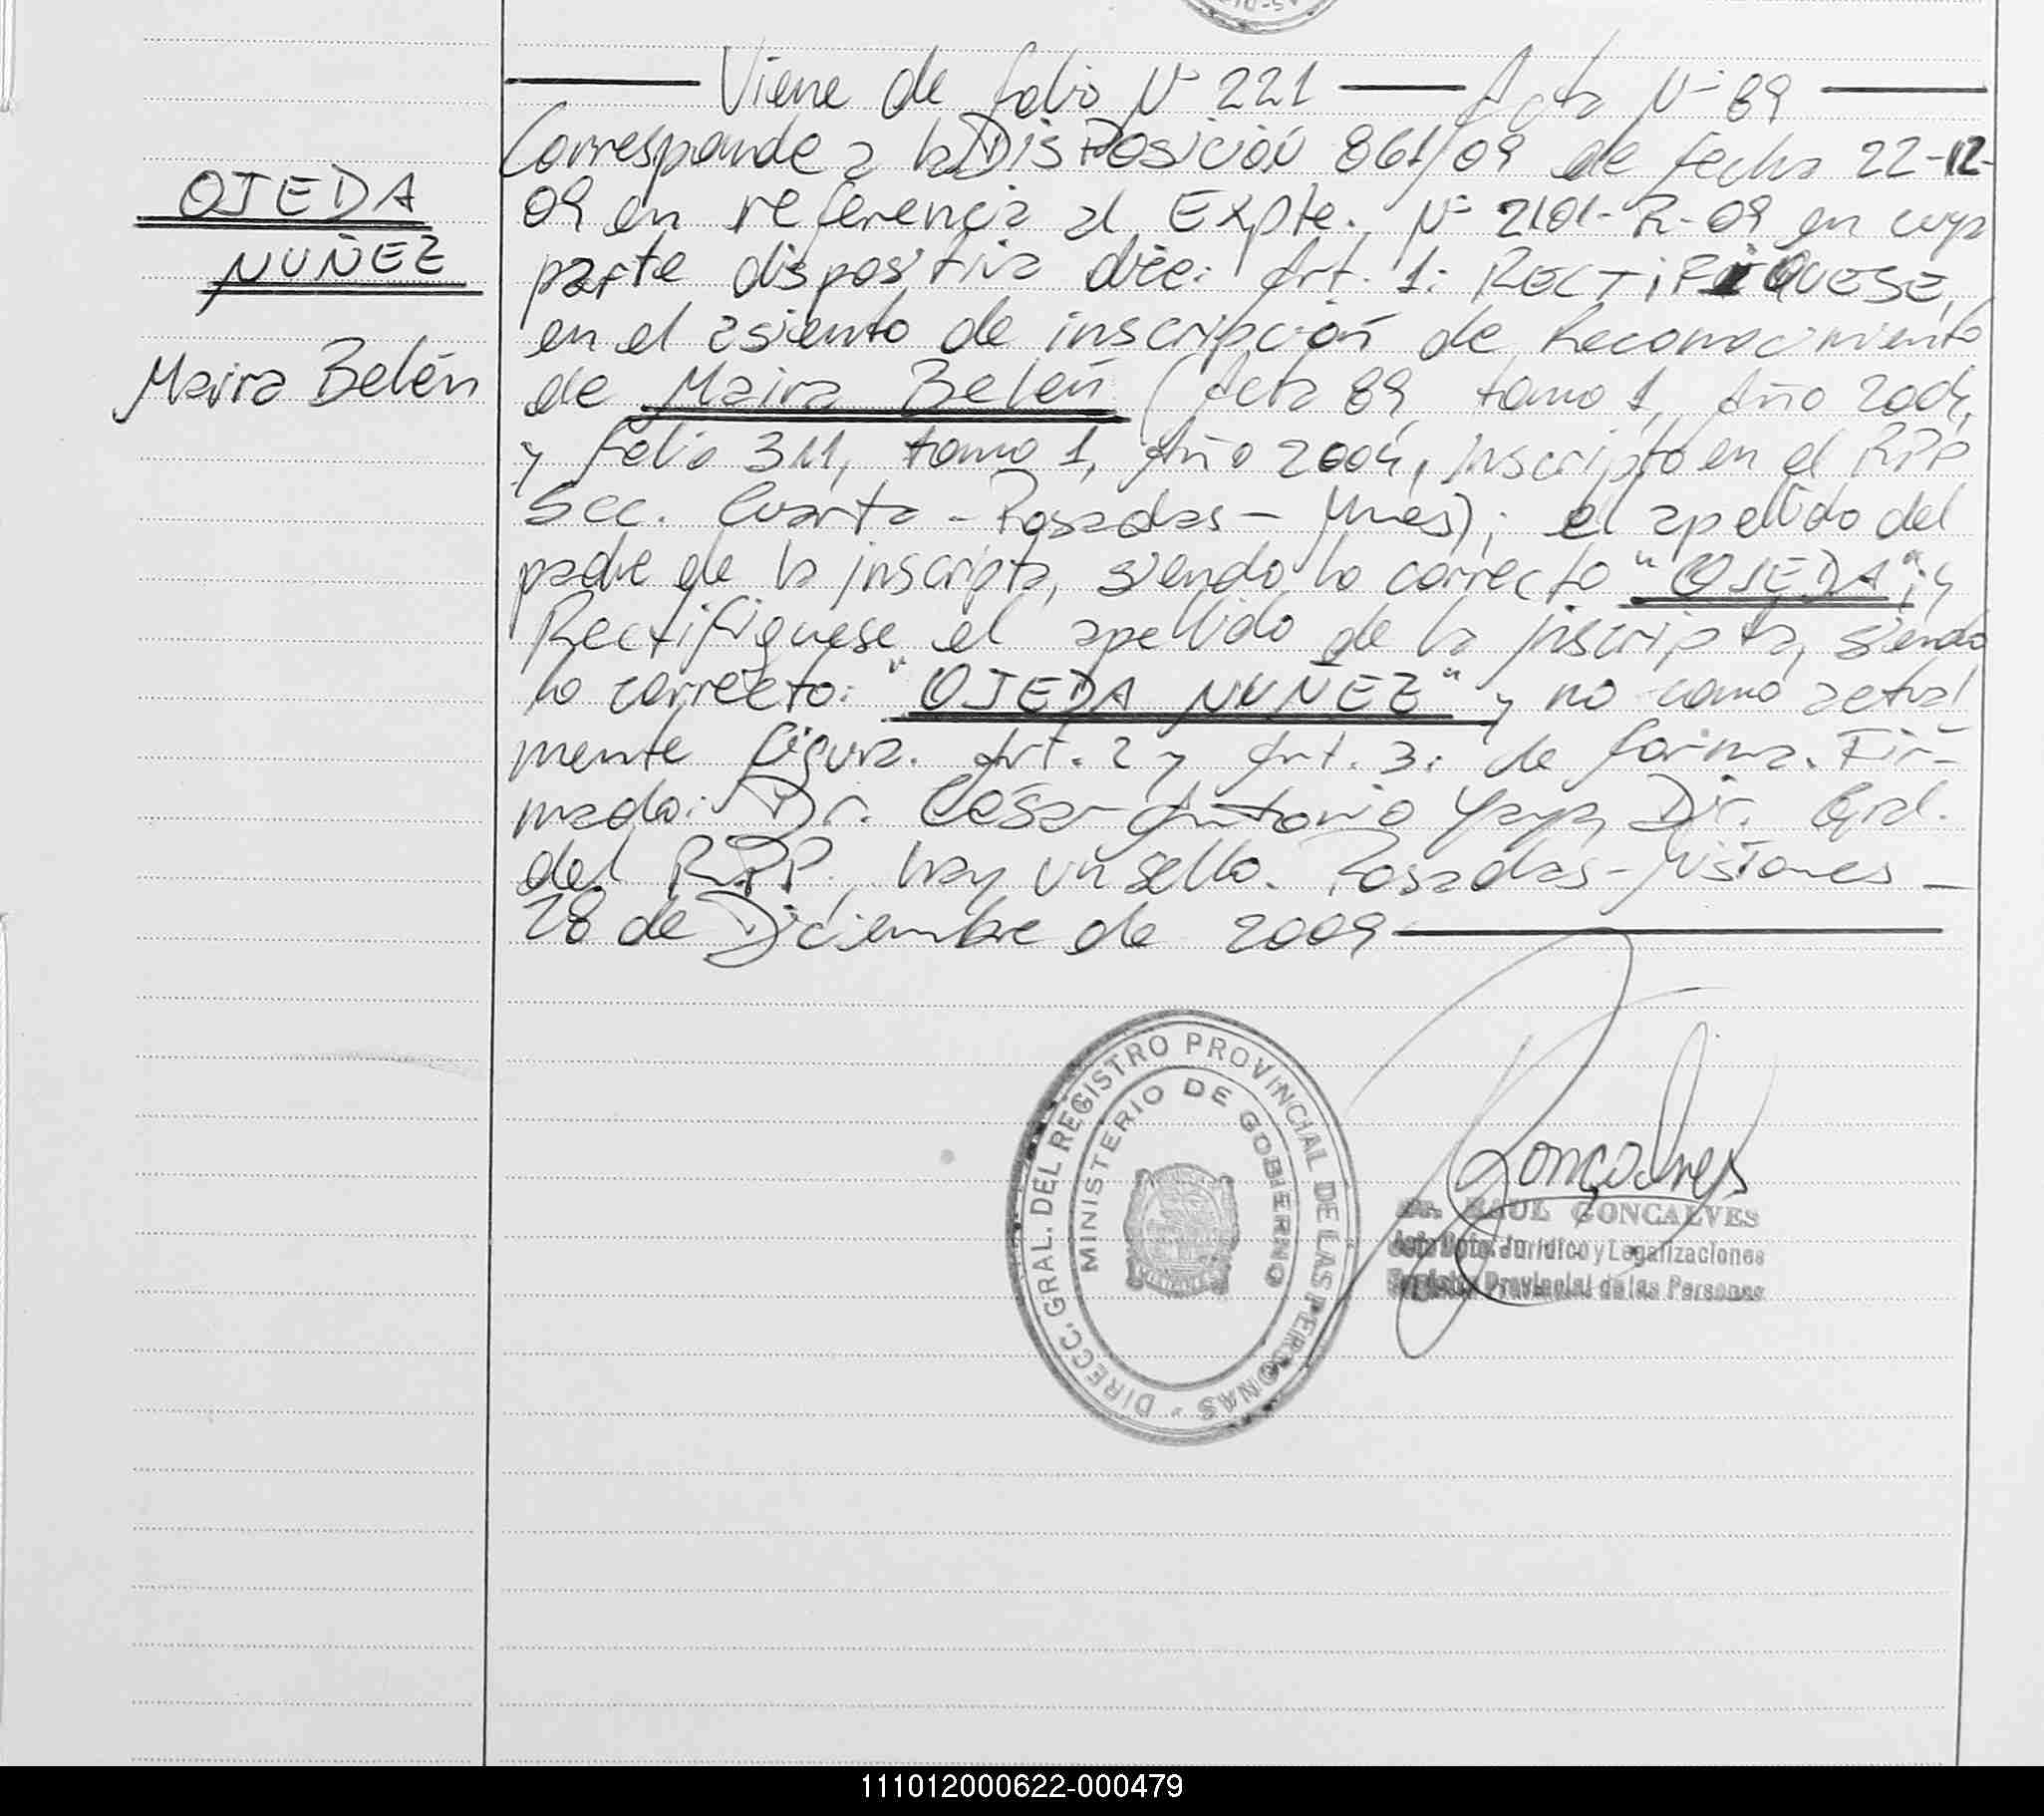 Viene de folio Nº 221 Acta Nº 89
OJEDA
NUÑEZ
Maira Belén
Corresponde a la DISPOSICIÓN 861/09 de fecha 22-12-
09 en referencia al Expte. Nº 2101-R-09 en cuya
parte dispositiva dice: Art. 1: RECTIFIQUESE,
en el asiento de inscripción de Reconocimiento
de Maira Belén (Acta 89, tomo 1, Año 2004,
y folio 311, tomo 1, Año 2004, inscripto en el RPP
Sec. Cuarta - Posadas - Mnes); el apellido del
padre de la inscripta, siendo lo correcto "OJEDA"; y
Rectifiquese el apellido de la inscripta, siendo
lo correcto: "OJEDA NUÑEZ" y no como actual
mente figura. Art. 2 y Art. 3: de forma. Fir-
mado: Dr. César Antonio Yaya, Dir. Gral.
del RPP, hay un sello. Posadas - Misiones -
28 de Diciembre de 2009
DIRECC. GRAL. DEL REGISTRO PROVINCIAL DE LAS PERSONAS -
MINISTERIO DE GOBIERNO
Goncalves
Dr. RAUL GONCALVES
Jefe Dpto. Jurídico y Legalizaciones
Registro Provincial de las Personas
111012000622-000479